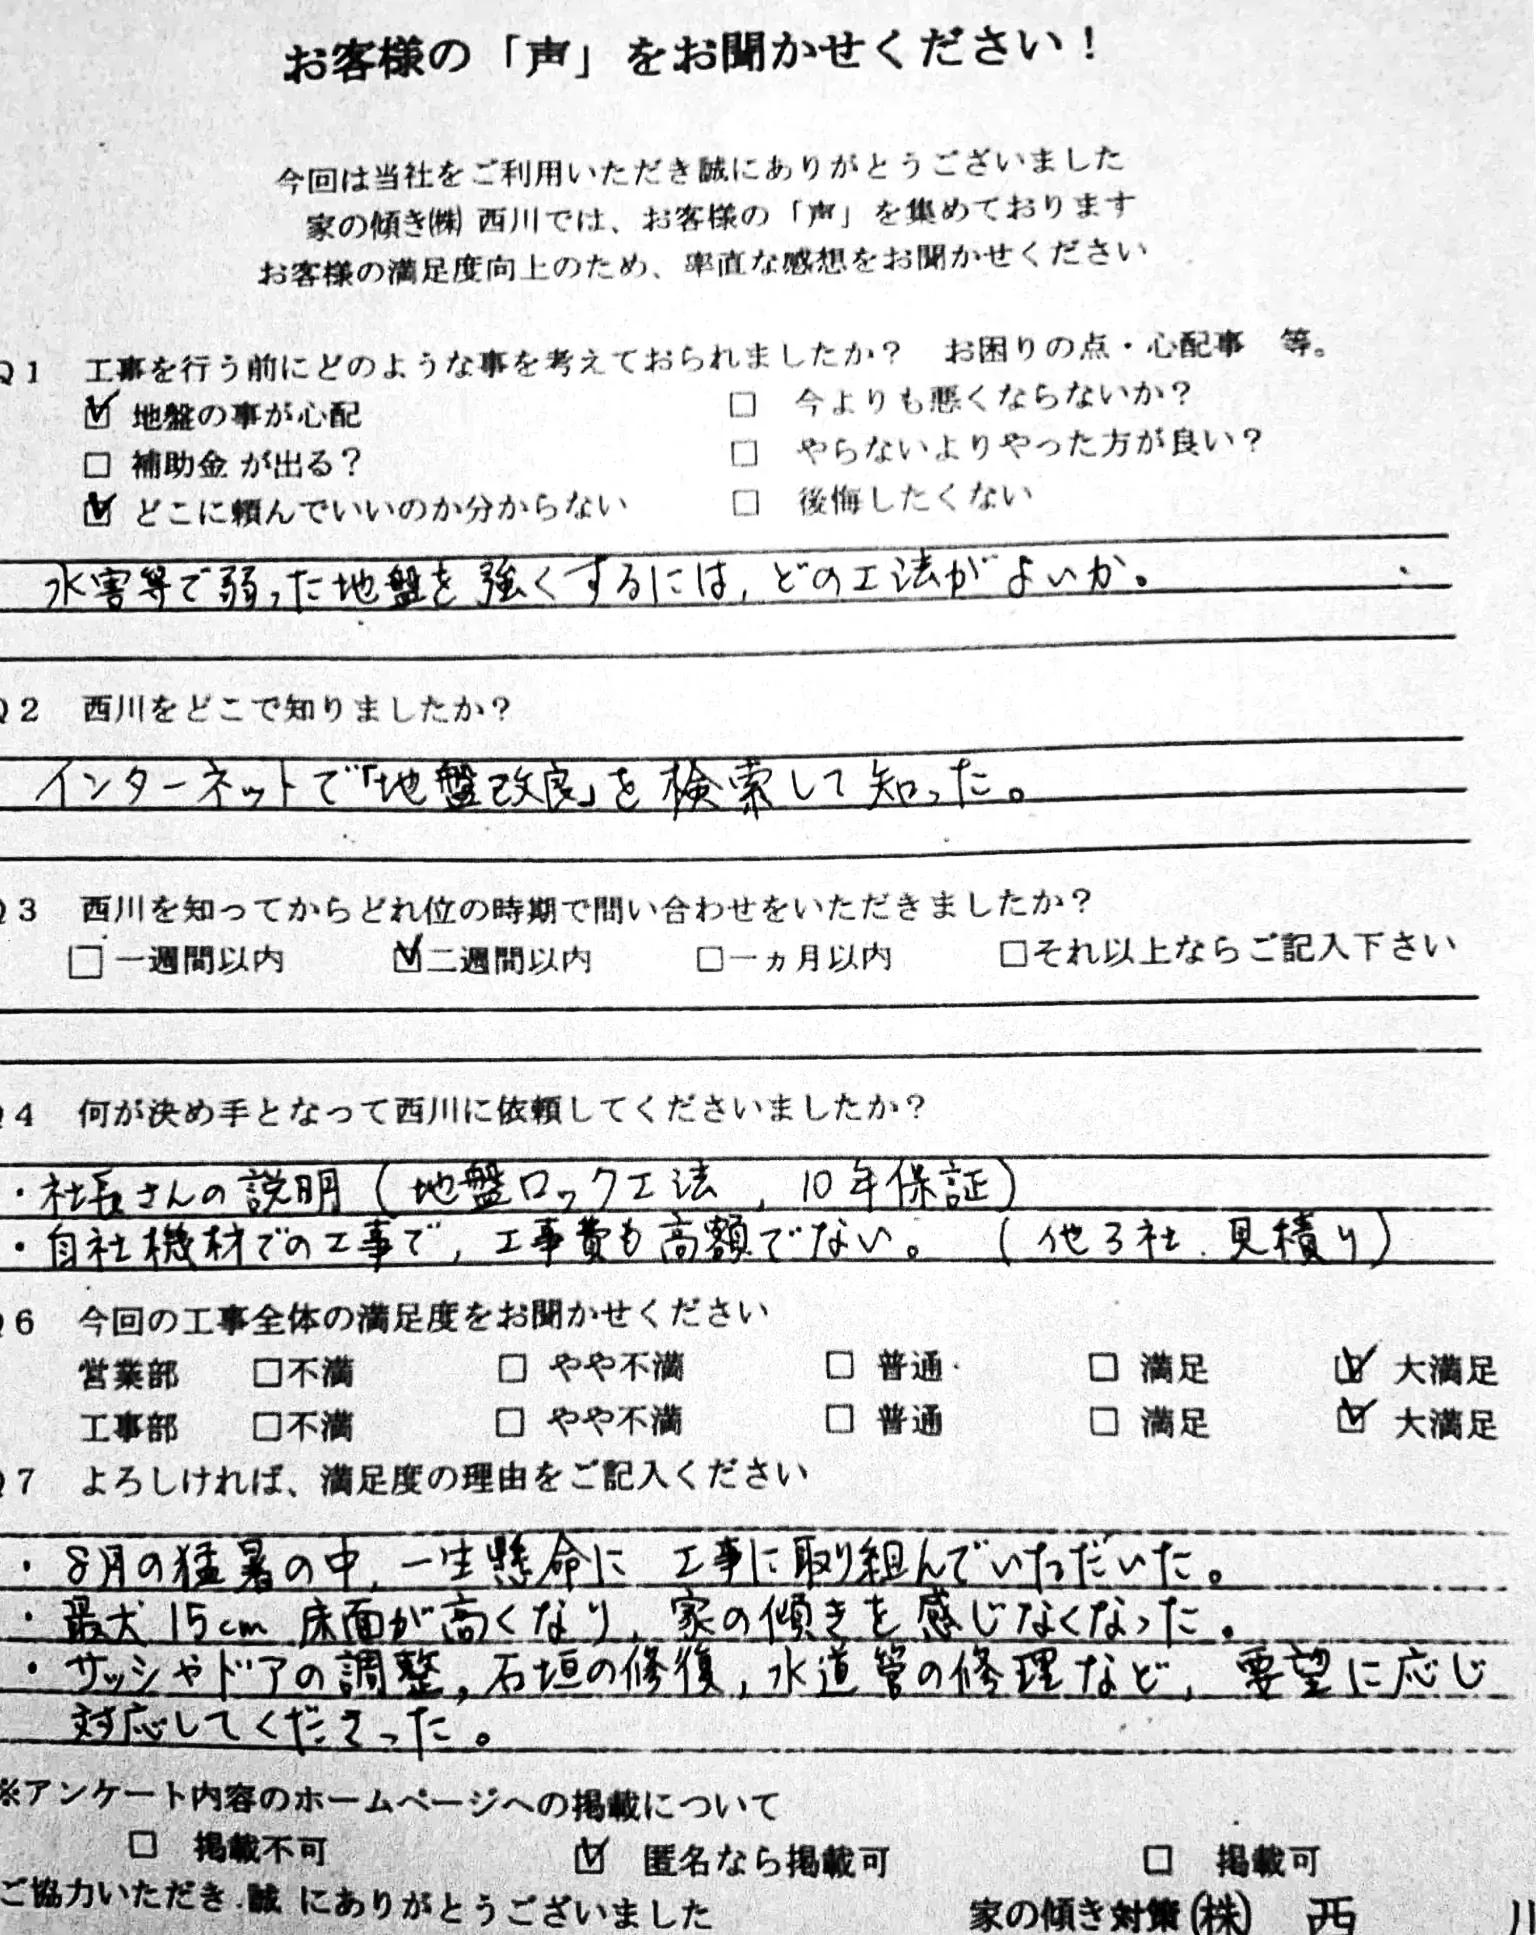 お客様の「声」をお聞かせください！
今回は当社をご利用いただき誠にありがとうございました
家の傾き㈱西川では、お客様の「声」を集めております
お客様の満足度向上のため、率直な感想をお聞かせください
Q1 工事を行う前にどのような事を考えておられましたか？ お困りの点・心配事 等。
☑ 地盤の事が心配 □ 今よりも悪くならないか？
□ 補助金が出る？ □ やらないよりやった方が良い？
☑ どこに頼んでいいのか分からない □ 後悔したくない
水害等で弱った地盤を強くするには、どの工法がよいか。
Q2 西川をどこで知りましたか？
インターネットで「地盤改良」を検索して知った。
Q3 西川を知ってからどれ位の時期で問い合わせをいただきましたか？
□一週間以内 ☑二週間以内 □一ヵ月以内 □それ以上ならご記入下さい
Q4 何が決め手となって西川に依頼してくださいましたか？
・社長さんの説明（地盤ロック工法、10年保証）
・自社機材での工事で、工事費も高額でない。（他3社、見積り）
Q6 今回の工事全体の満足度をお聞かせください
営業部 □不満 □ やや不満 □ 普通 □ 満足 ☑ 大満足
工事部 □不満 □ やや不満 □ 普通 □ 満足 ☑ 大満足
Q7 よろしければ、満足度の理由をご記入ください
・8月の猛暑の中、一生懸命に工事に取り組んでいただいた。
・最大15cm床面が高くなり、家の傾きを感じなくなった。
・サッシやドアの調整、石垣の修復、水道管の修理など、要望に応じ
対応してくださった。
※アンケート内容のホームページへの掲載について
□ 掲載不可 ☑ 匿名なら掲載可 □ 掲載可
ご協力いただき誠にありがとうございました 家の傾き対策(株) 西 川